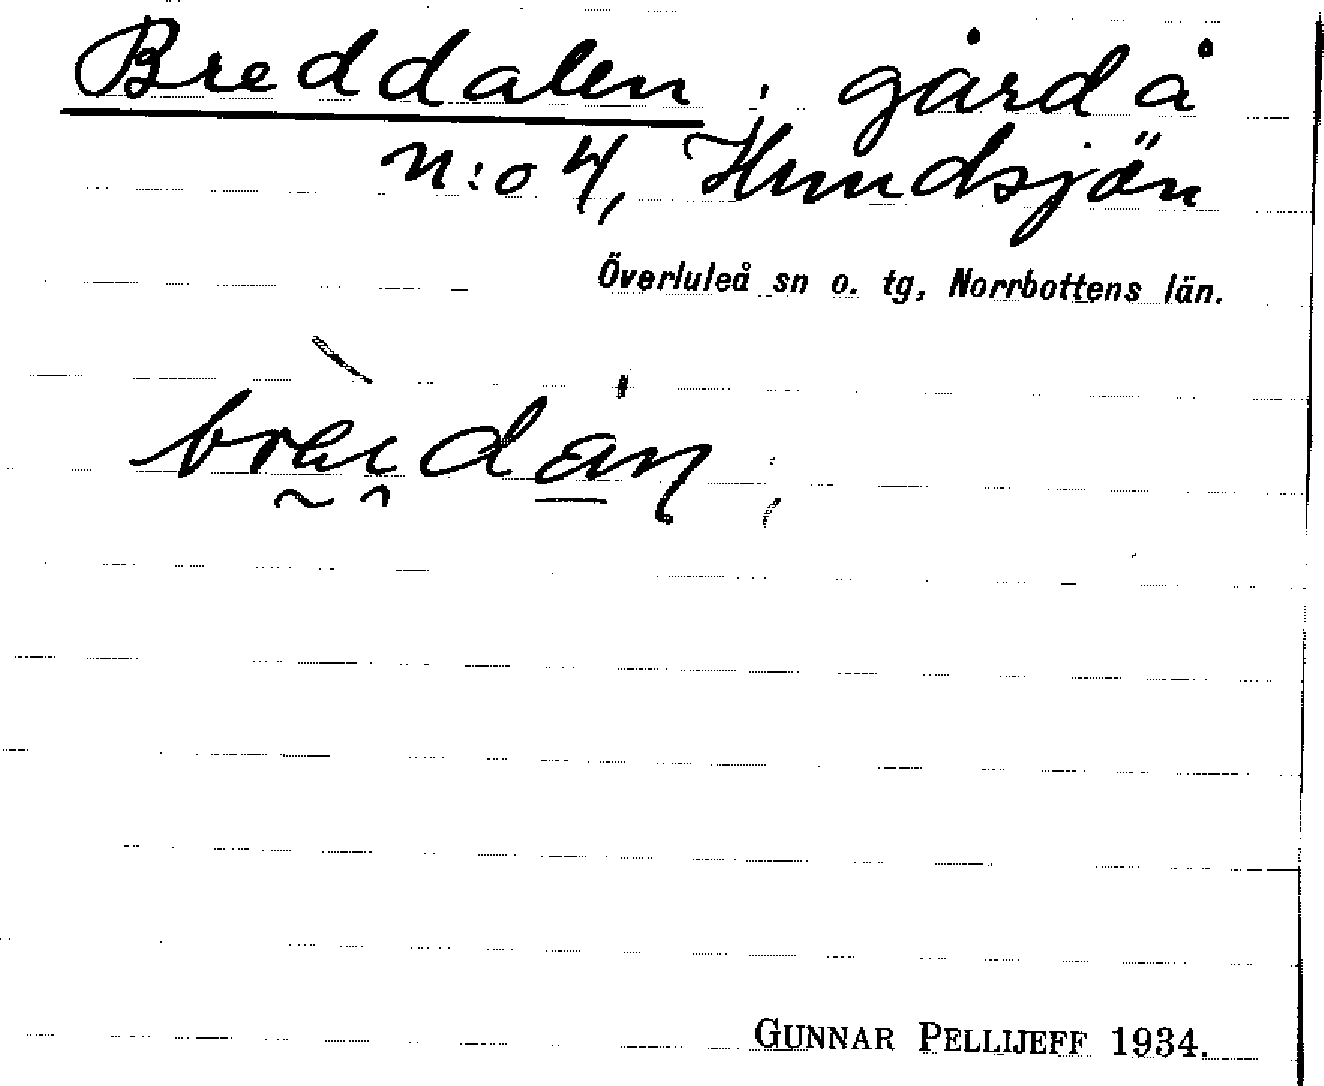 Breddalen, gård å
n:o 4, Hundsjön
Överluleå sn o. tg, Norrbottens län.
GUNNAR PELLIJEFF 1934.